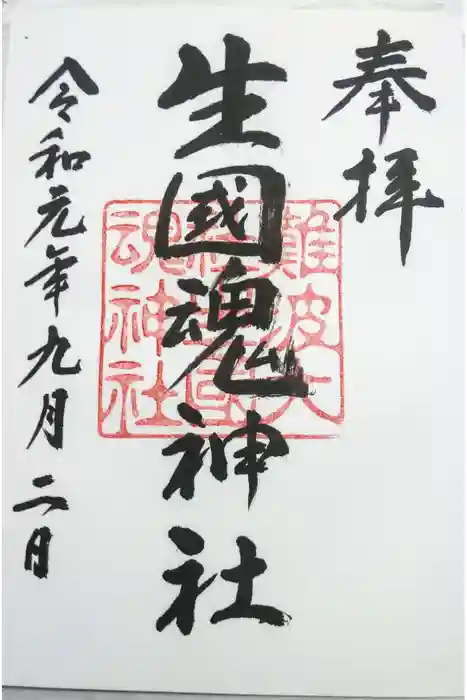 奉拝
生國魂神社
難波大
社生國
魂神社
令和元年九月二日